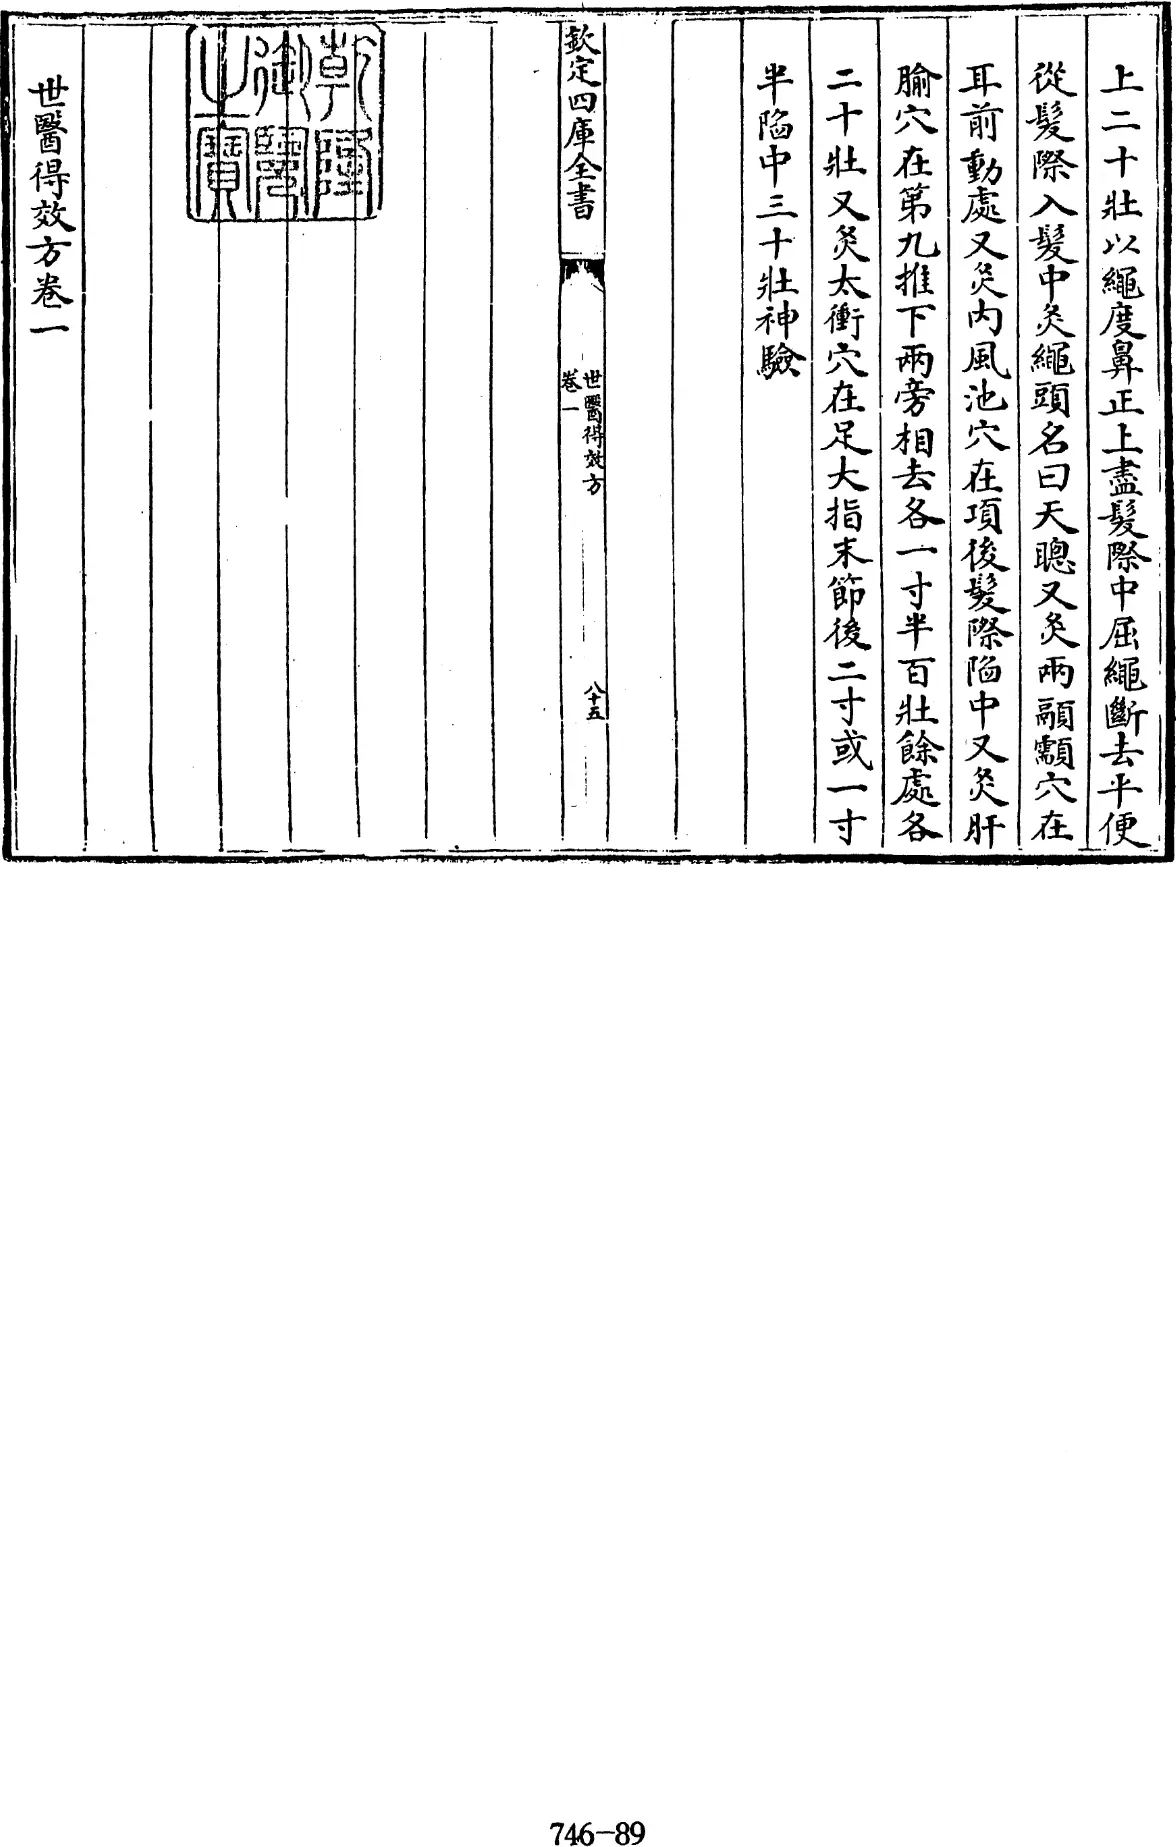 上二十壯以繩度鼻正上盡髮際中屈繩斷去半便
從髮際入髮中灸繩頭名曰天聰又灸兩顳顬穴在
耳前動處又灸内風池穴在項後髮際陷中又灸肝
腧穴在第九椎下兩旁相去各一寸半百壯餘處各
二十壯又灸太衝穴在足大指末節後二寸或一寸
半陷中三十壯神驗
欽定四庫全書
世醫得效方
卷一
八十五
乾隆
御覽
之寶
世醫得效方卷一
746-89